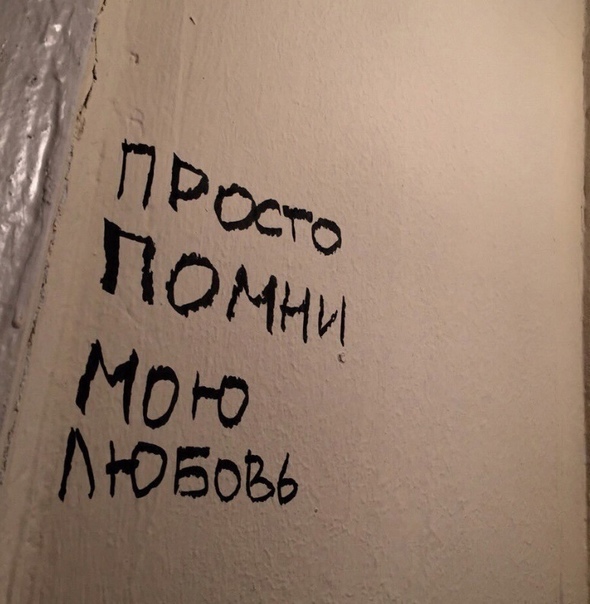 ПРОСТО
ПОМНИ
МОЮ
ЛЮБОВЬ